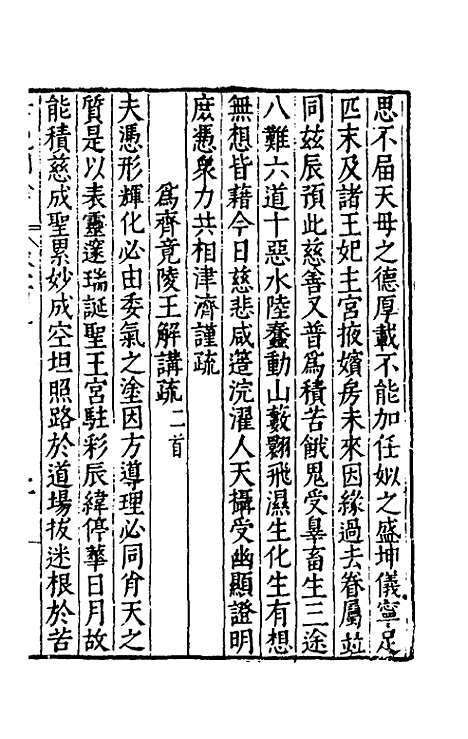 思不屆天母之德厚載不能加任姒之盛坤儀寧足
匹末及諸王妃主宮掖嬪房未來因緣過去眷屬竝
同玆辰預此慈善又普爲積苦餓鬼受辠畜生三途
八難六道十惡水陸蠢動山藪翾飛濕生化生有想
無想皆藉今日慈悲咸蓫浣濯人天攝受幽顯證明
庶憑衆力共相津濟謹疏
爲齊竟陵王解講疏二首
夫憑形輝化必由委氣之塗因方導理必同肖天之
質是以表靈邃瑞誕聖王宮駐彩辰緯停華日月故
能積慈成聖累妙成空坦照路於道場拔迷根於苦